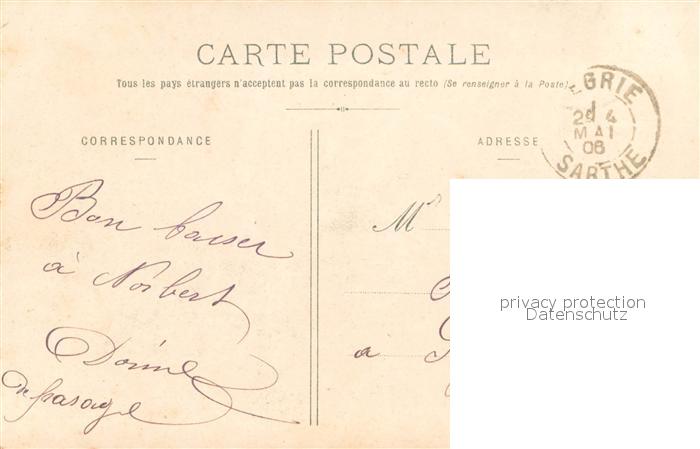 CARTE POSTALE
Tous les pays étrangers n'acceptent pas la correspondance au recto (Se renseigner à la Poste)
CORRESPONDANCE
ADRESSE
GRIE
2d 4
MAI
06
SARTHE
Bon baiser
à Norbert
M
à
privacy protection
Datenschutz